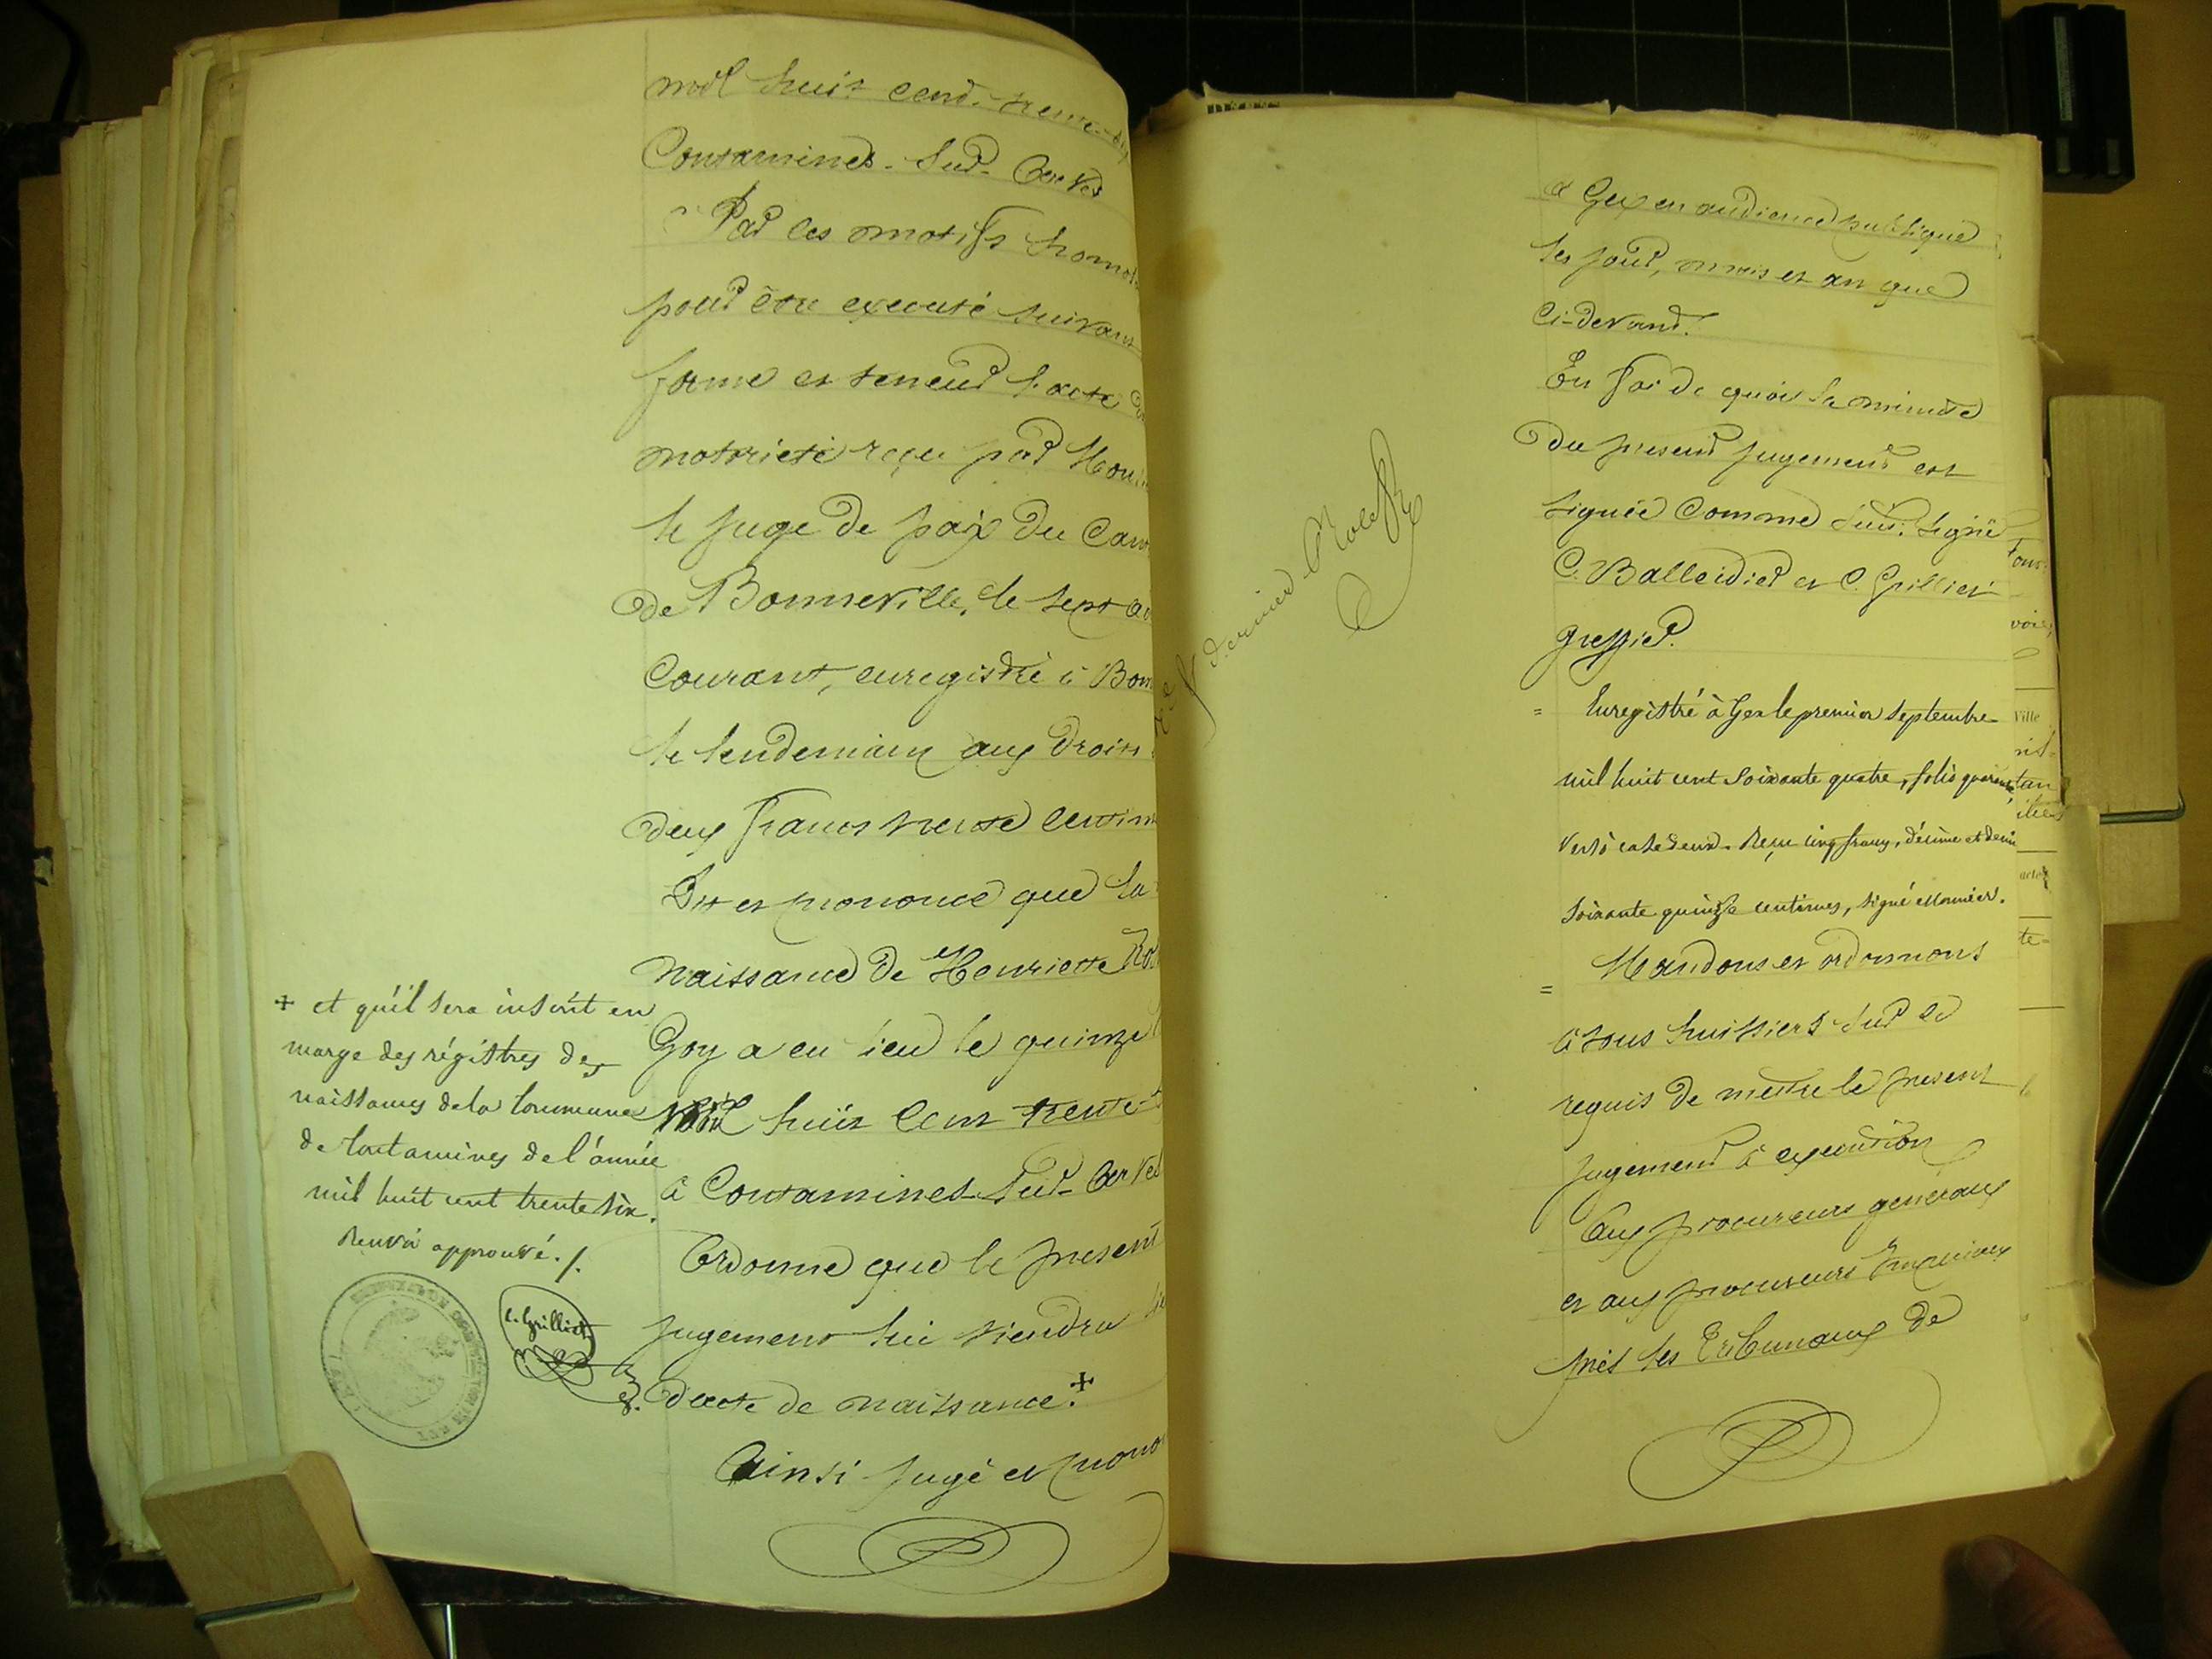 mil huit cent trente-six
Contamines-Sur-Arve
Par les motifs homol
pour être executé suivant
forme et teneur l'acte de
notorieté reçu par Mons
le juge de paix du Can
de Bonneville, le sept a
Courant, enregistré à Bon
le lendemain aux droits
deux francs trente centim
Dit et prononce que la
naissance de Henriette
Goy a eu lieu le quinze
mil huit cent trente-
à Contamines-Sur-Arve
Ordonne que le present
jugement lui tiendra
d'acte de naissance. +
Ainsi jugé et prono
+ et qu'il sera inscrit en
marge des régistres des
naissances de la Commune
de Contamines de l'année
mil huit cent trente six.
Renvoi approuvé. /.
C. Grilliet
dernier Role
à Gex en audience publique
les jour, mois et an que
Ci-devant.
En foi de quoi la minute
du present jugement est
signée Comme suit: Signé
C. Balleidier et C. Grilliet
greffier.
= Enregistré à Gex le premier Septembre
mil huit cent soixante quatre, folio quarante
verso case deux. Reçu cinq francs, décime et demi
soixante quinze centimes, signé Monnier.
= Mandons et ordonnons
à tous huissiers sur ce
requis de mettre le present
jugement à execution
Aux procureurs generaux
et aux procureurs Imperiaux
près les Tribunaux de